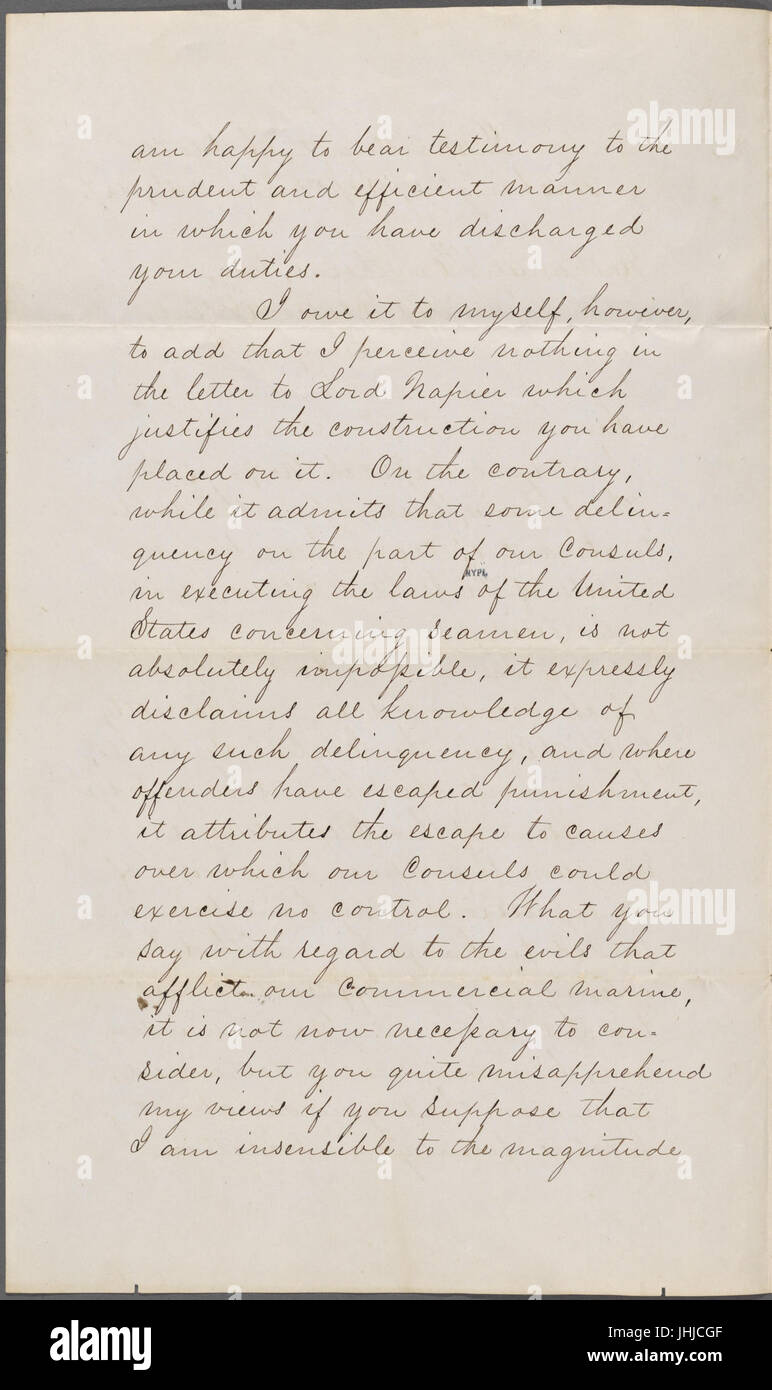 am happy to bear testimony to the
prudent and efficient manner
in which you have discharged
your duties.
I owe it to myself, however,
to add that I perceive nothing in
the letter to Lord Napier which
justifies the construction you have
placed on it. On the contrary,
while it admits that some delin=
quency on the part of our Consuls,
NYPL
in executing the laws of the United
States concerning seamen, is not
absolutely impossible, it expressly
disclaims all knowledge of
any such delinquency, and where
offenders have escaped punishment,
it attributes the escape to causes
over which our Consuls could
exercise no control. What you
say with regard to the evils that
afflict our Commercial marine,
it is not now necessary to con=
sider, but you quite misapprehend
my views if you suppose that
I am insensible to the magnitude
alamy stock photo
JHJCGF
www.alamy.com